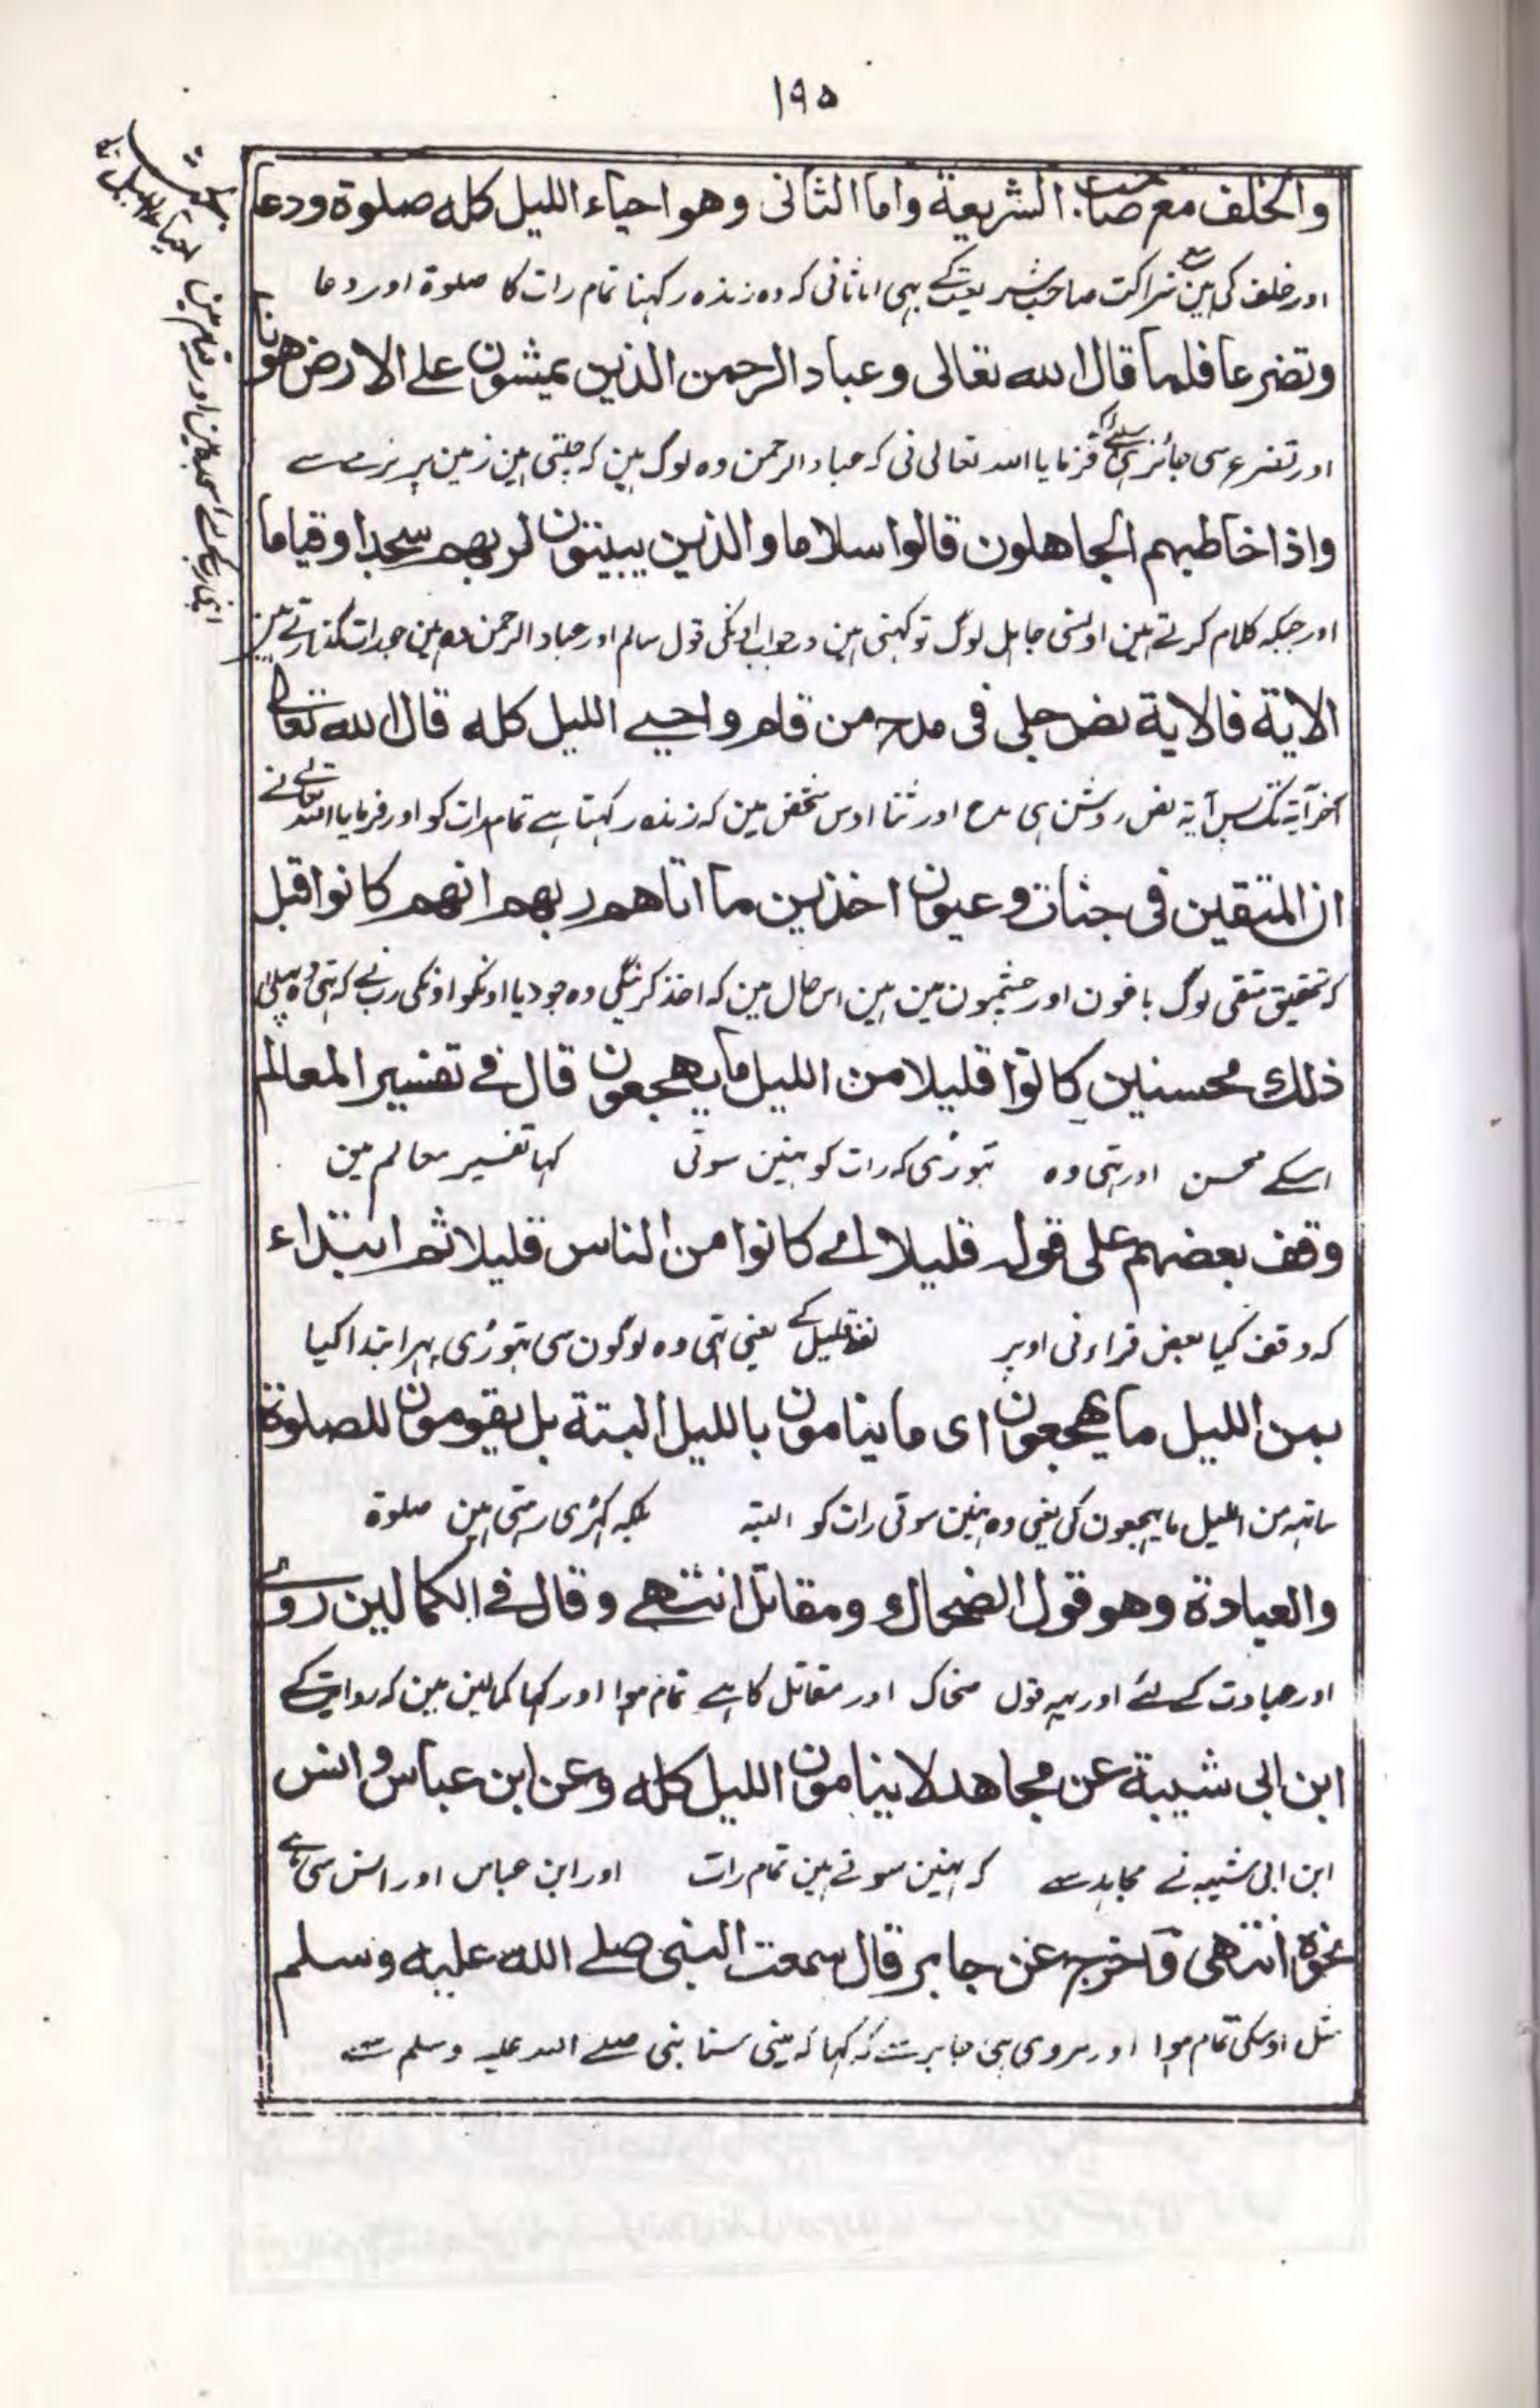 ١٩٥
والخلف مع صاحب الشريعة واما الثانى وهو احياء الليل كله صلوة ودعا
اور خلف کی ہین شراکت صاحب شریعت کے بہی اما ثانی کہ وہ زندہ رکہنا تمام رات کا صلوة اور دعا
وتضرعا فلما قال الله تعالى وعباد الرحمن الذين يمشون على الارض هونا
اور تضرع سی جائز ہی اسلئے کہ فرمایا اللہ تعالی نی کہ عباد الرحمن وہ لوگ ہین کہ چلتی ہین زمین پر نرمے سے
واذا خاطبهم الجاهلون قالوا سلاما والذين يبيتون لربهم سجدا وقياما
اور جبکہ کلام کرتے ہین اونسی جاہل لوگ تو کہتی ہین در جواب اونکی قول سالم اور عباد الرحمن وہ ہین جو رات گذارتے ہین
اپنی رب کے لئے سجدہ مین اور قیام مین
الاية فالاية نص جلى فى مدح من قام واحيى الليل كله قال الله تعالى
آخر آیة تک پس آیة نص روشن ہی مدح اور ثنا اوس شخص مین کہ زندہ رکہتا ہے تمام رات کو اور فرمایا اللہ تعالے نے
ان المتقين فى جنات وعيون اخذين ما اتاهم ربهم انهم كانوا قبل
کہ تحقیق متقی لوگ باغون اور چشمون مین ہین اس حال مین کہ اخذ کرینگی وہ جو دیا اونکو اونکی رب نے کہ تہی وہ پہلی
ذلك محسنين كانوا قليلا من الليل ما يهجعون قال فى تفسير المعالم
اسکے محسن اور تہی وہ تہوڑی کہ رات کو نہین سوتی کہا تفسیر معالم مین
وقف بعضهم على قوله قليلا اى كانوا من الناس قليلا ثم ابتداء
کہ وقف کیا بعض قراء نی اوپر لفظ قلیل کے یعنی تہی وہ لوگون سی تہوڑی پہر ابتدا کیا
بمن الليل ما يهجعون اى ما ينامون بالليل البتة بل يقومون للصلوة
ساتہہ من اللیل ما یہجعون کی یعنی وہ نہین سوتی رات کو البتہ بلکہ کہڑی رہتی ہین صلوة
والعبادة وهو قول الضحاك ومقاتل انتهى وقال فى الكمالين روى
اور عبادت کے لئے اور یہہ قول ضحاک اور مقاتل کا ہے تمام ہوا اور کہا کمالین مین کہ روایت کے
ابن ابى شيبة عن مجاهد لا ينامون الليل كله وعن ابن عباس وانس
ابن ابی شیبہ نے مجاہد سے کہ نہین سوتے ہین تمام رات اور ابن عباس اور انس سی ہے
نحوه انتهى واخرج عن جابر قال سمعت النبى صلى الله عليه وسلم
مثل اوسکی تمام ہوا اور مروی ہی جابر سے کہ کہا کہ مینی سنا نبی صلے اللہ علیہ وسلم سے